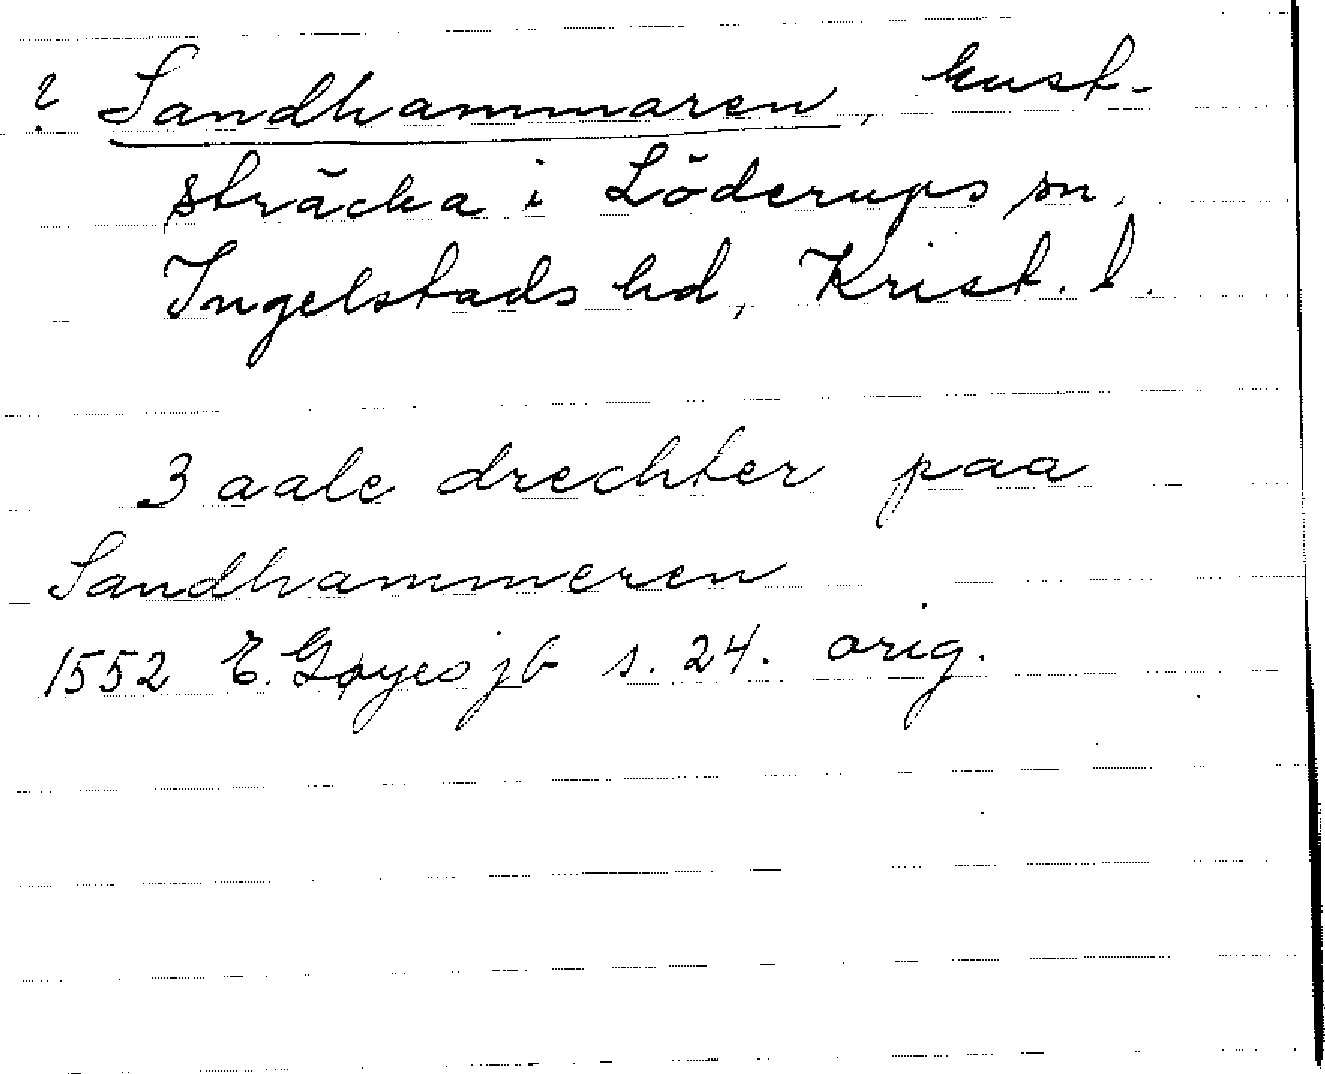 ? Sandhammaren, kust-
sträcka i Löderups sn,
Ingelstads hd, Krist. l.
3 aale drechter paa
Sandhammeren
1552 E. Gøyes jb s. 24. orig.